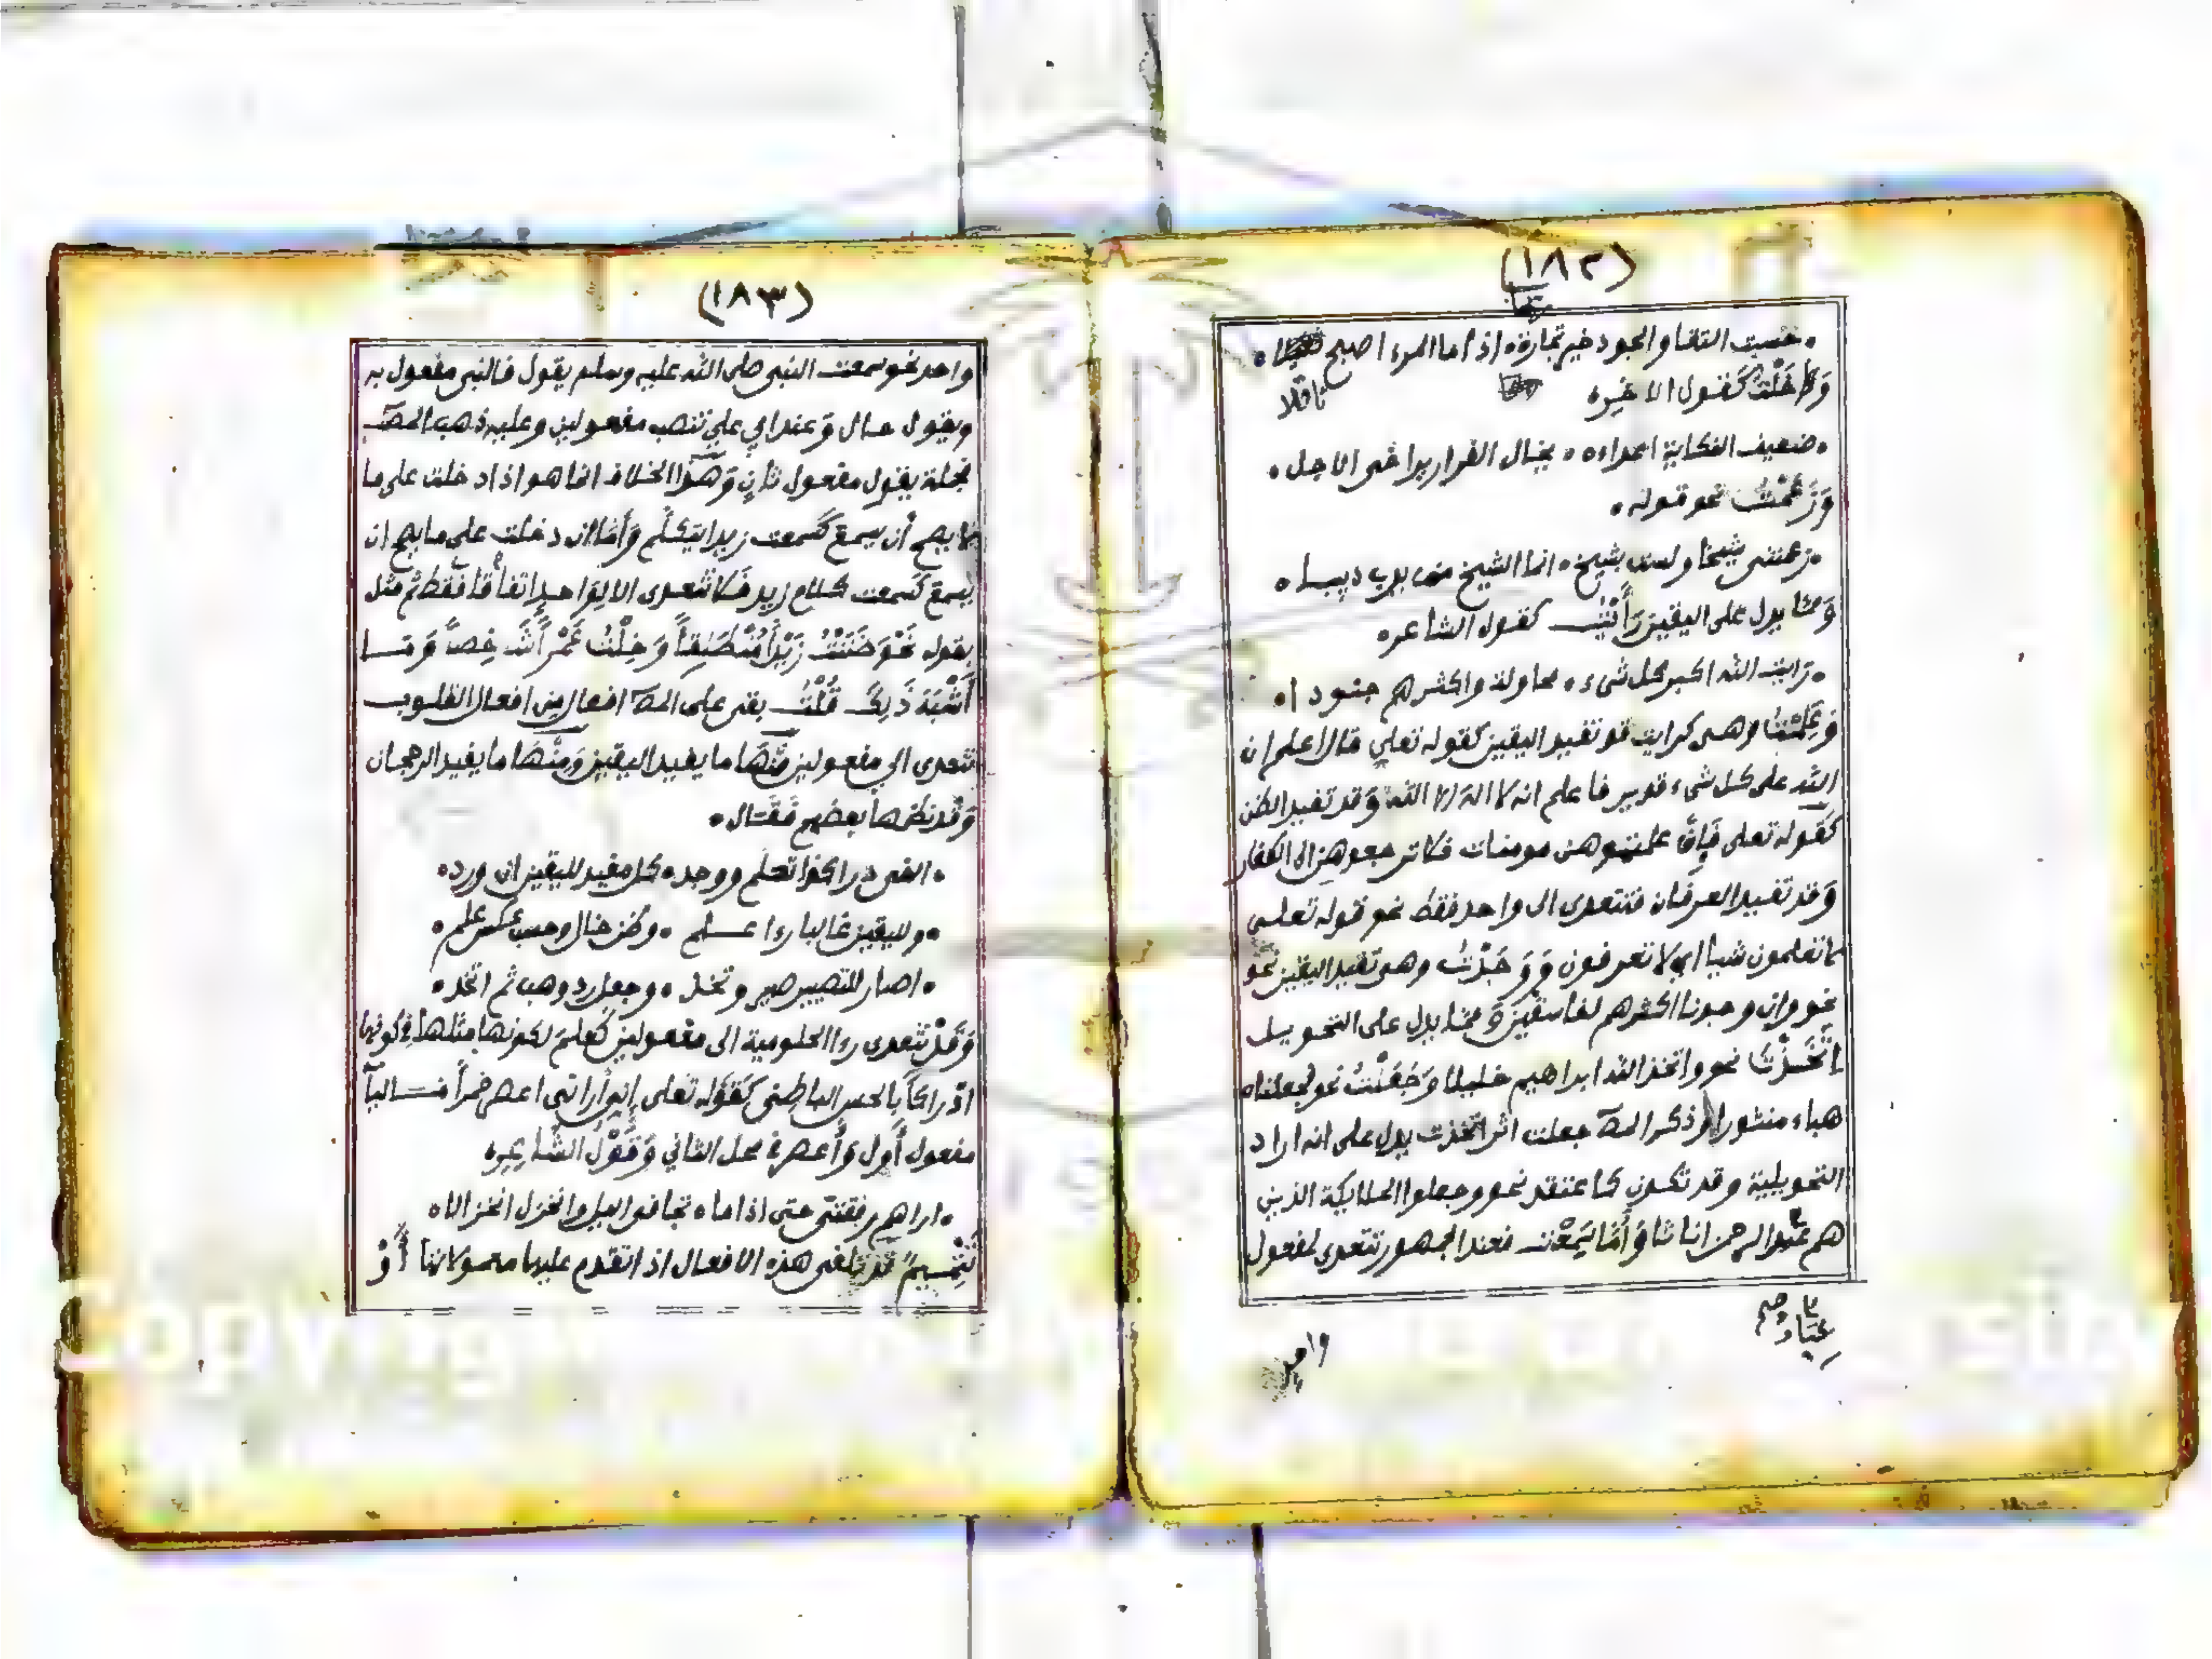 (١٨٢)
حسبت التقا والجود خير تجارة ٠ اذا ما المرء اصبح
ثاقلا
وَخَلْتُ كقول الاخره
٠ ضعيف النكاية اعداءه ٠ يخال الفرار يراخى الاجل ٠
وَزَعَمْتُ نحو قوله ٠
٠ زعمتنى شيخا ولست بشيخ ٠ انما الشيخ من يدب دبيبا ٠
وَمما يدل على اليقين رَأَيْتُ كقول الشاعر ٠
٠ رايت الله اكبر كل شىء ٠ محاولة واكثرهم جنودا ٠
وَعَلِمْتُ وهى كرايت قد تفيد اليقين كقوله تعلى قال اعلم ان
الله على كل شىء قدير فاعلم انه لا اله الا الله وَقد تفيد الظن
كقوله تعلى فَإِن علمتموهن مومنات فلا ترجعوهن الى الكفار
وَقد تفيد العرفان فتتعدى الى واحد فقط نحو قوله تعلى
لا تعلمون شيا اى لا تعرفون وَوَجَدْتُ وهو تفيد اليقين نحو
نحو وان وجدنا اكثرهم لفاسقين وَمما يدل على التحويل
اتَّخَذْتُ نحو واتخذ الله ابراهيم خليلا وَجَعَلْتُ نحو فجعلناه
هباء منثورا وذكر المصَ جعلت اثر اتخذت يدل على انه اراد
التحويلية وقد تكون كاعتقد نحو وجعلوا الملايكة الذين
هم عند الرحمن اناثا وَأَمَّا سَمِعْتُ فعند الجمهور تتعدى لمفعول
عباد صح
واحد
(١٨٣)
واحد نحو سمعت النبى صلى الله عليه وسلم يقول فالنبى مفعول به
ويقول حال وَعند ابي علي تنصب مفعولين وعليه ذهب المصَ
فجملة يقول مفعول ثانٍ وَهذا الخلاف انما هو اذا دخلت على ما
لا يصح أن يسمع كسمعت زيدا يتكلم وَأما ان دخلت على ما يصح ان
يسمع كسمعت كلام زيد فَلا تتعدى الا لِوَاحدٍ اتفاقا فقط ثم مثل
بقوله نَحْوَ ظَنَنْتُ زَيْداً مُنْطَلِقاً وَخِلْتُ عَمْراً شَاخِصاً وَمَا
أَشْبَهَ ذَلِكَ قُلْتُ بقى على المصَ افعال من افعال القلوب
تتعدى الى مفعولين مِنْهَا ما يفيد اليقين وَمِنْهَا ما يفيد الرجحان
وَقد نظمها بعضهم فَقَال ٠
٠ الفى درا كذا تعلم ووجد ٠ كل مفيد لليقين ان ورد ٠
٠ ولليقين غالبا رءا علم ٠ وظن خال وحسب عكس علم ٠
٠ اصار للتصيير صير وتخذ ٠ وجعل رد وهب ثم اتخذ ٠
وَقَدْ تتعدى رءا الحلومية الى مفعولين كعلم لكونها مثلها فى كونها
ادراكا بالحس الباطنى كَقوله تعلى إني أراني اعصر خمراً فاليآ
مفعول أول وَأعصر فى محل الثاني وَقَوْلُ الشَّاعِرِ ٠
٠ اراهم رفقتى حتى اذا ما ٠ تجافى الليل وانخزل انخزالا ٠
تَتْمِيمٌ قد تلغى هذه الافعال اذا تقدم عليها معمولاتها أَوْ